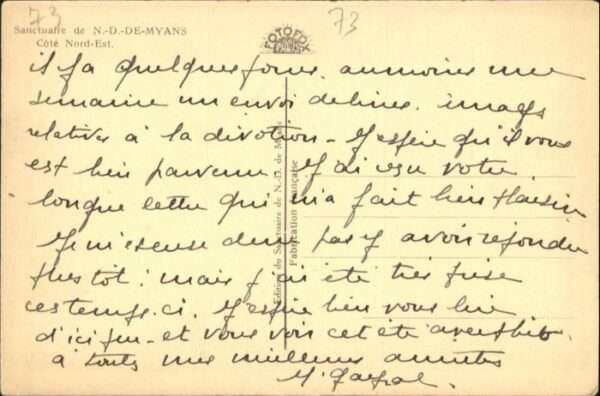 73
73
Sanctuaire de N.-D.-DE-MYANS
Côté Nord-Est.
FOTOFDY
il y a quelques jours, au moins une
semaine un envoi de livres, images
relatives à la dévotion - J'espère qu'il vous
est bien parvenu. J'ai reçu votre
longue lettre qui m'a fait bien plaisir
Je m'excuse de ne pas y avoir répondu
plus tôt : mais j'ai été très prise
ces temps-ci. J'espère bien vous lire
d'ici peu - et vous voir cet été
à toutes mes meilleures amitiés
M.
Edition du Sanctuaire de N.-D. de Myans
Fabrication Française